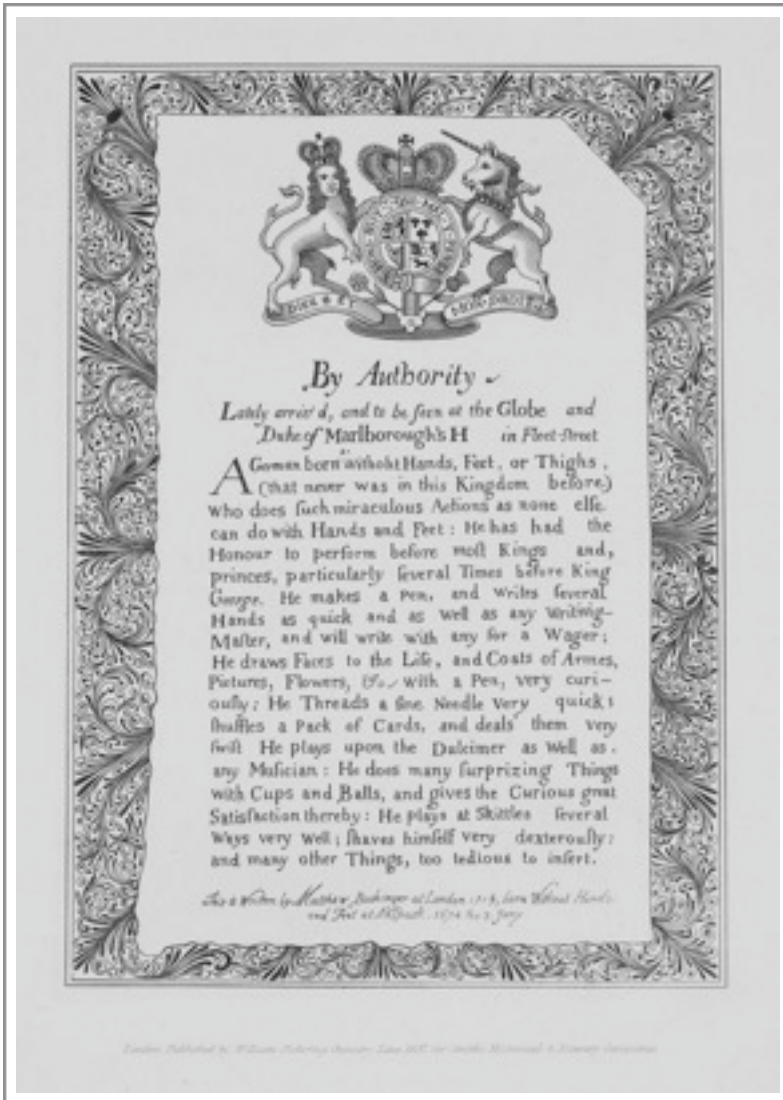 By Authority
Lately arriv'd, and to be ſeen at the Globe and
Duke of Marlborough's H in Fleet-Street
A German born without Hands, Feet, or Thighs,
(that never was in this Kingdom before)
Who does ſuch miraculous Actions as none elſe
can do with Hands and Feet: He has had the
Honour to perform before moſt Kings and,
princes, particularly ſeveral Times before King
George. He makes a Pen, and Writes ſeveral
Hands as quick and as Well as any Writing-
Maſter, and will write with any for a Wager;
He draws Faces to the Life, and Coats of Armes,
Pictures, Flowers, &c. with a Pen, very curi-
ouſly; He Threads a fine Needle Very quick;
ſhuffles a Pack of Cards, and deals them very
ſwift He plays upon the Dulcimer as Well as.
any Muſician: He does many ſurprizing Things
with Cups and Balls, and gives the Curious great
Satisfaction thereby: He plays at Skittles ſeveral
Ways very Well; ſhaves himſelf very dexterouſly;
and many other Things, too tedious to inſert.
This is Written by Matthew Buchinger at London born Without Hands
and Feet at 1674
London Published by William Pickering Chancery Lane